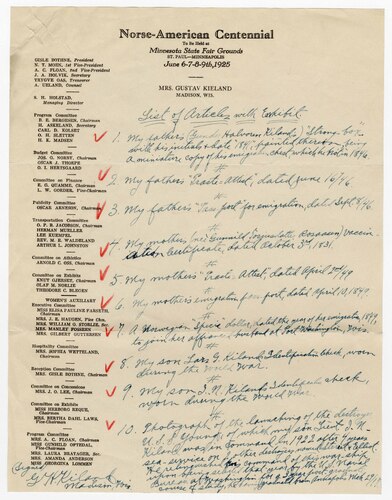 Norse-American Centennial
To Be Held at
Minnesota State Fair Grounds
ST. PAUL—MINNEAPOLIS
June 6-7-8-9th, 1925
MRS. GUSTAV KIELAND
MADISON, WIS.
GISLE BOTHNE, President
N. T. MOEN, 1st Vice-President
A. C. FLOAN, 2nd Vice-President
J. A. HOLVIK, Secretary
TRYGVE OAS, Treasurer
A. UELAND, Counsel
S. H. HOLSTAD,
Managing Director
Program Committee
B. E. BERGESEN, Chairman
H. ASKELAND, Secretary
CARL D. KOLSET
O. H. SLETTEN
H. K. MADSEN
Budget Committee
JOS. G. NORBY, Chairman
OSCAR J. THORPE
O. I. HERTSGAARD
Committee on Finance
E. G. QUAMME, Chairman
L. W.
Publicity Committee
OSCAR ARNESON, Chairman
Transportation Committee
O. P. B. JACOBSON, Chairman
HERMAN MUELLER
LEE KUEMPEL
REV. M. B. WALDELAND
ARTHUR L. JOHNSTON
Committee on Athletics
ARNOLD C. OSS, Chairman
Committee on Exhibits
KNUT GJERSET, Chairman
OLAF M. NORLIE
THEODORE C. BLEGEN
WOMEN'S AUXILIARY
Executive Committee
MISS ELISA PAULINE FARSETH,
Chairman
MRS. WILLIAM O. STORLIE, Sec.
MRS. MANLEY FOSSEEN
MRS. GILBERT GUTTERSEN
Hospitality Committee
MRS. SOPHIA WETTELAND,
Chairman
Reception Committee
MRS. GISLE BOTHNE, Chairman
Committee on Concessions
MRS. J. O. LEE, Chairman
Committee on Exhibits
MISS HERBORG REQUE,
Chairman
MRS. BERTHA DAHL LAWS,
Vice-Chairman
Program Committee
MRS. A. C. FLOAN, Chairman
MRS. GUNNILD
MRS. LAURA BRATAGER, Sec.
MRS. AMANDA ANDERSON
MISS GEORGINA LOMMEN
List of Articles with Exhibit
1. My fathers (Gunder Halvorsen Kieland) "Strong box"
with his initials & date "1846", painted thereon being
a miniature copy of his emigrant chest which he had in 1846.
2. My fathers "Praste Attest", dated June 1846
3. My fathers "Pass port" for emigration, dated Sept 8/46
4. My mothers (nee Gunnild
vaccin-
ation Certificate, dated October 3rd, 1831
5. My mothers "Praste Attest, dated April 2nd/49
6. My mothers emigration pass port, dated April 13, 1849
7. A Norwegian Specie dollar, dated this year of her emigration, 1849,
to join her husband at Port Washington, Wis.
8. My son Lars G. Kieland's Identification check, worn
during the World War.
9. My son T. N. Kieland's Identification check,
worn during the World War
10. Photograph of the launching of the destroyer
U.S.S. Young, of which my son Lieut. T. N.
Kieland, was in Command in 1922 after 7 years
sea-service
Signed
G. K. Kieland
Madison Wis